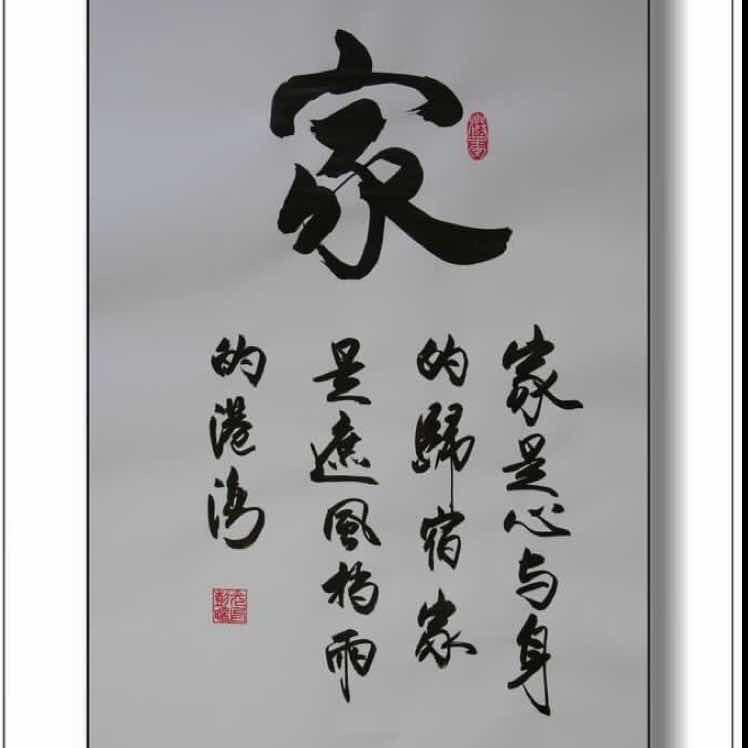 家
家是心与身
的歸宿家
是遮風挡雨
的港湾